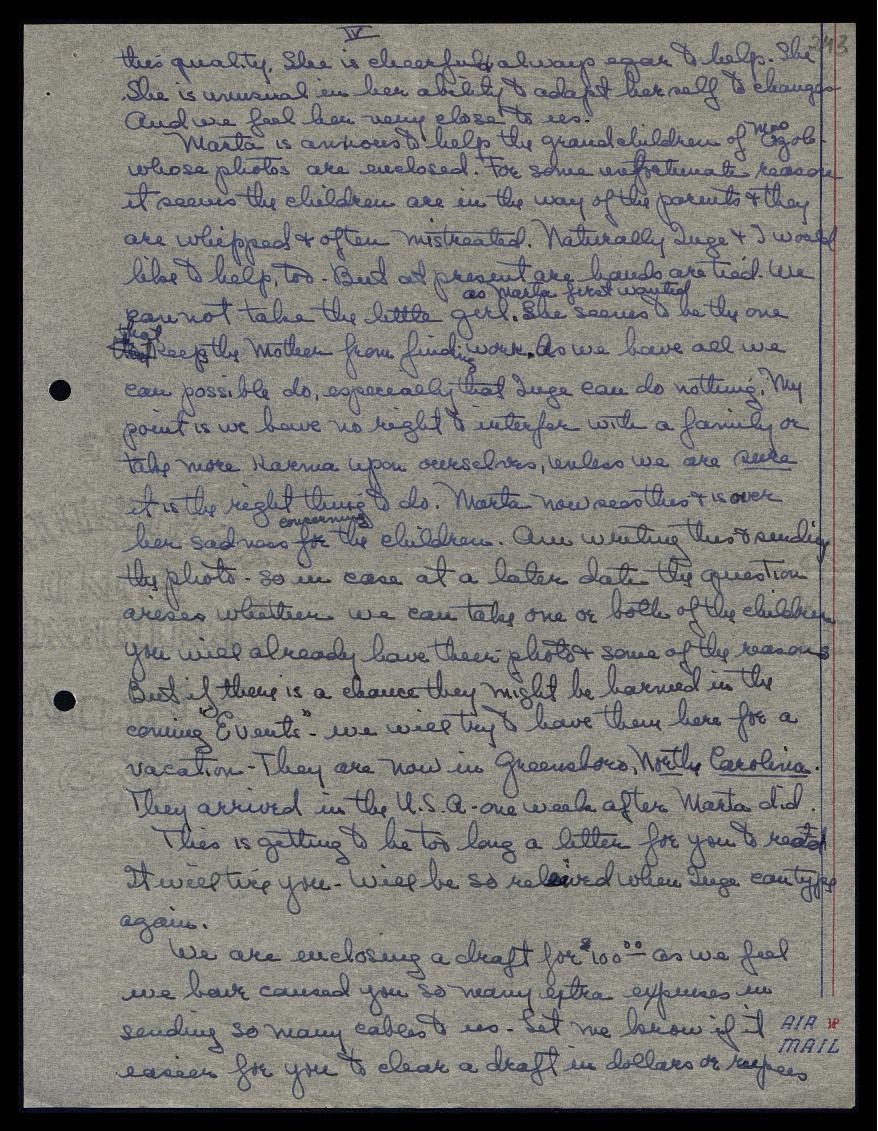 IV
243
this quality. She is cheerful & always egar to help. She
She is unusual in her ability to adapt her self to changes
And we feel her very close to us.
Marta is anxous to help the grandchildren of Mrs
whose photos are enclosed. For some unfortunate reason
it seems the children are in the way of the parents & they
are whipped & often mistreated. Naturally Inge & I would
like to help, too - But at present are hands are tied. We
as Marta first wanted
can not take the little girl. She seems to be the one
that
keep the Mother from finding work. As we have all we
can possible do, especially that Inge can do nothing. My
point is we have no right to interfer with a family or
take more Karma upon ourselves, unless we are sure
it is the right thing to do. Marta now sees this & is over
concerning
her sadness for the children. Am writing this & sending
the photo - so in case at a later date the question
arises whether we can take one or both of the children
you will already have their photo & some of the reasons
But if there is a chance they might be harmed in the
coming "Events" - we will try to have them here for a
vacation - They are now in Greensboro, North Carolina.
They arrived in the U.S.A - one week after Marta did.
This is getting to be too long a letter for you to read
It will tire you - Will be so releived when Inge can type
again.
We are enclosing a draft for $100.00 - as we feel
we have caused you so many extra expenses in
sending so many cables to us - Let me know if it
AIR
MAIL
easier for you to clear a draft in dollars or rupees